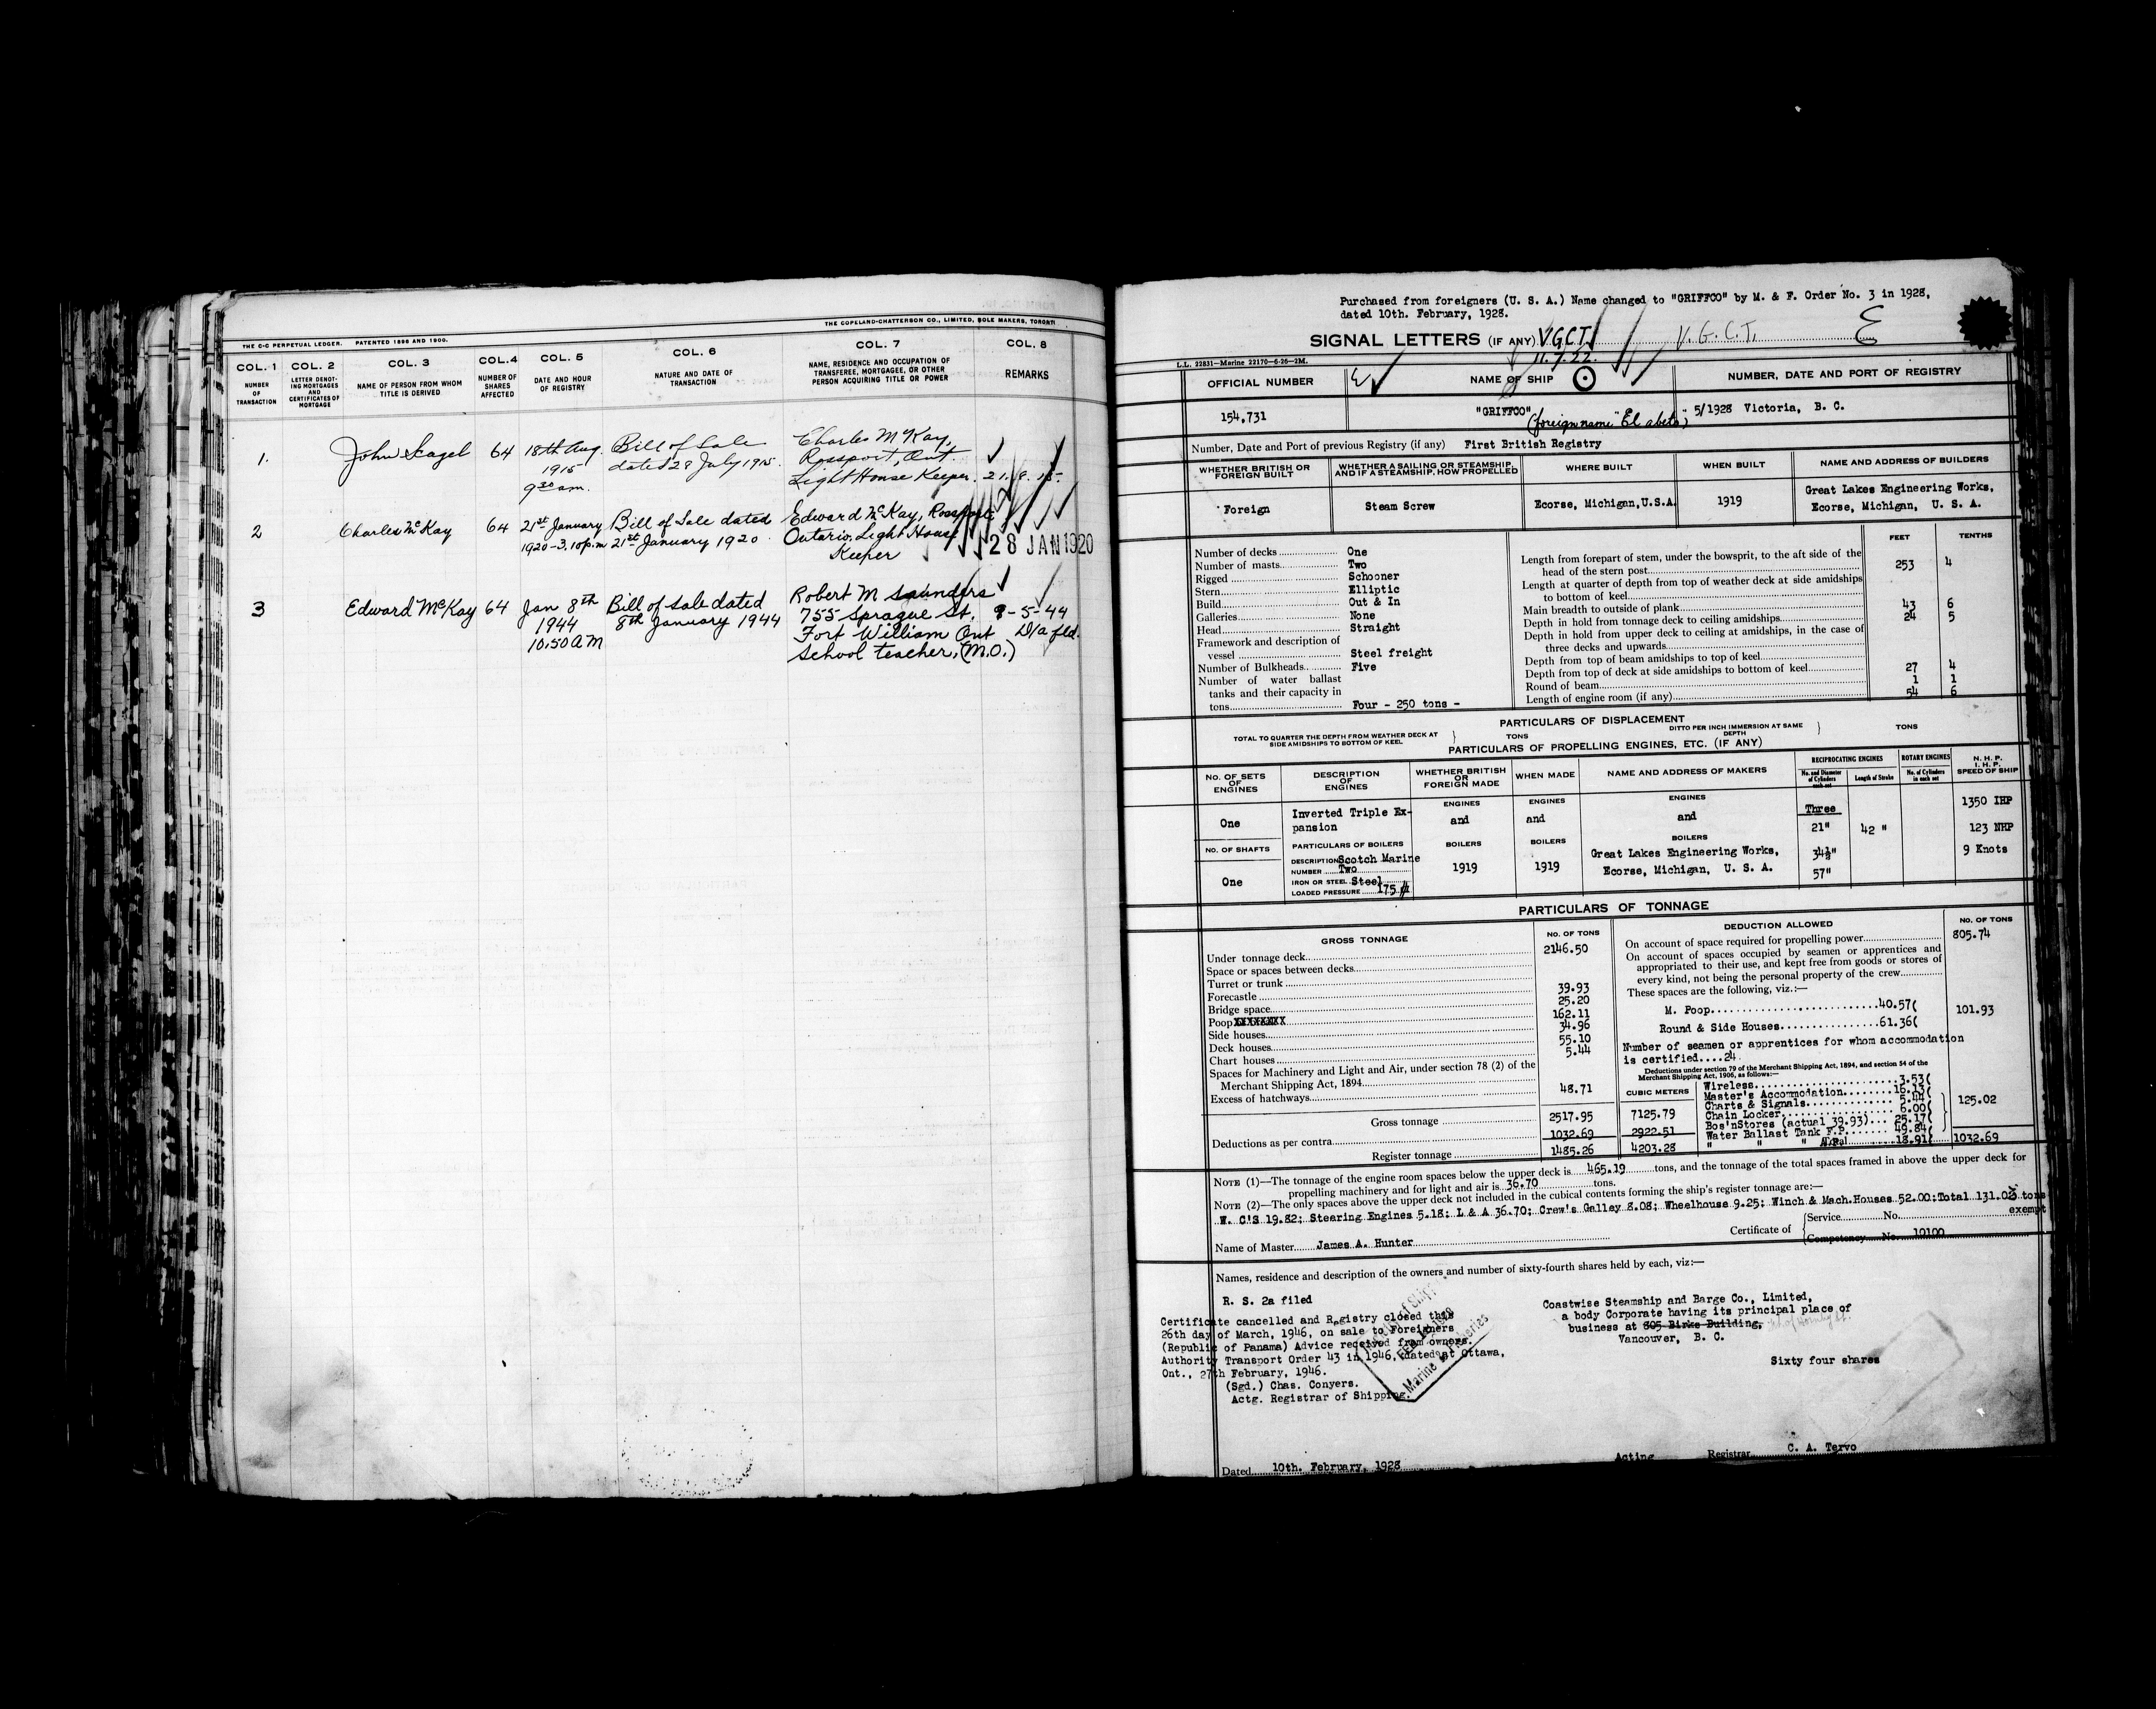 THE COPELAND-CHATTERSON CO., LIMITED, SOLE MAKERS, TORONTO
THE C-C PERPETUAL LEDGER. PATENTED 1896 AND 1900.
COL. 1 COL. 2 COL. 3 COL. 4 COL. 5 COL. 6 COL. 7 COL. 8
NUMBER OF TRANSACTION
LETTER DENOTING MORTGAGES AND CERTIFICATES OF MORTGAGE
NAME OF PERSON FROM WHOM TITLE IS DERIVED
NUMBER OF SHARES AFFECTED
DATE AND HOUR OF REGISTRY
NATURE AND DATE OF TRANSACTION
NAME, RESIDENCE AND OCCUPATION OF TRANSFEREE, MORTGAGEE, OR OTHER PERSON ACQUIRING TITLE OR POWER
REMARKS
1. John Scagel 64 18th Aug. Bill of Sale Charles McKay,
1915 dated 28 July 1915. Rossport, Ont.
9 30 am. Light House Keeper. 21.8.15.
2 Charles McKay 64 21st January Bill of Sale dated Edward McKay, Rossport
1920-3.10 p.m 21st January 1920 Ontario, Light House
Keeper 28 JAN 1920
3 Edward McKay 64 Jan 8th Bill of Sale dated Robert M Saunders
1944 8th January 1944 755 Sprague St. 9-5-44
10.50 AM Fort William Ont D/a fld.
School teacher, (M.O.)
Purchased from foreigners (U. S. A.) Name changed to "GRIFFCO" by M. & F. Order No. 3 in 1928,
dated 10th. February, 1928.
SIGNAL LETTERS (IF ANY) V.G.C.T. V.G.C.T. E
11.7.22.
L.L. 22831—Marine 22170—6-26—2M.
OFFICIAL NUMBER NAME OF SHIP NUMBER, DATE AND PORT OF REGISTRY
154,731 "GRIFFCO" 5/1928 Victoria, B. C.
(foreign name "El abeto")
Number, Date and Port of previous Registry (if any) First British Registry
WHETHER BRITISH OR FOREIGN BUILT
WHETHER A SAILING OR STEAMSHIP, AND IF A STEAMSHIP, HOW PROPELLED
WHERE BUILT
WHEN BUILT
NAME AND ADDRESS OF BUILDERS
Foreign Steam Screw Ecorse, Michigan, U.S.A. 1919 Great Lakes Engineering Works,
Ecorse, Michigan, U. S. A.
FEET TENTHS
Number of decks One
Number of masts Two
Rigged Schooner
Stern Elliptic
Build Out & In
Galleries None
Head Straight
Framework and description of
vessel Steel freight
Number of Bulkheads Five
Number of water ballast
tanks and their capacity in
tons Four - 250 tons -
Length from forepart of stem, under the bowsprit, to the aft side of the
head of the stern post 253 4
Length at quarter of depth from top of weather deck at side amidships
to bottom of keel
Main breadth to outside of plank 43 6
Depth in hold from tonnage deck to ceiling amidships 24 5
Depth in hold from upper deck to ceiling at amidships, in the case of
three decks and upwards
Depth from top of beam amidships to top of keel
Depth from top of deck at side amidships to bottom of keel 27 4
Round of beam 1 1
Length of engine room (if any) 54 6
PARTICULARS OF DISPLACEMENT
TOTAL TO QUARTER THE DEPTH FROM WEATHER DECK AT SIDE AMIDSHIPS TO BOTTOM OF KEEL } TONS DITTO PER INCH IMMERSION AT SAME DEPTH } TONS
PARTICULARS OF PROPELLING ENGINES, ETC. (IF ANY)
NO. OF SETS OF ENGINES
DESCRIPTION OF ENGINES
WHETHER BRITISH OR FOREIGN MADE
WHEN MADE
NAME AND ADDRESS OF MAKERS
RECIPROCATING ENGINES
No. and Diameter of Cylinders each set
Length of Stroke
ROTARY ENGINES
No. of Cylinders in each set
N. H. P.
I. H. P.
SPEED OF SHIP
One Inverted Triple Expansion
ENGINES and ENGINES and ENGINES and
Three
21" 42 "
34½"
57"
1350 IHP
123 NHP
9 Knots
NO. OF SHAFTS PARTICULARS OF BOILERS BOILERS BOILERS BOILERS
One
DESCRIPTION Scotch Marine
NUMBER Two
IRON OR STEEL Steel
LOADED PRESSURE 175 #
1919 1919 Great Lakes Engineering Works,
Ecorse, Michigan, U. S. A.
PARTICULARS OF TONNAGE
GROSS TONNAGE NO. OF TONS
Under tonnage deck 2146.50
Space or spaces between decks
Turret or trunk
Forecastle 39.93
Bridge space 25.20
Poop 162.11
Side houses 34.96
Deck houses 55.10
Chart houses 5.44
Spaces for Machinery and Light and Air, under section 78 (2) of the
Merchant Shipping Act, 1894
Excess of hatchways 48.71
CUBIC METERS
Gross tonnage 2517.95 7125.79
Deductions as per contra 1032.69 2922.51
Register tonnage 1485.26 4203.28
DEDUCTION ALLOWED NO. OF TONS
On account of space required for propelling power 805.74
On account of spaces occupied by seamen or apprentices and
appropriated to their use, and kept free from goods or stores of
every kind, not being the personal property of the crew
These spaces are the following, viz.:—
M. Poop 40.57(
101.93
Round & Side Houses 61.36(
Number of seamen or apprentices for whom accommodation
is certified....24.
Deductions under section 79 of the Merchant Shipping Act, 1894, and section 54 of the
Merchant Shipping Act, 1906, as follows:—
Wireless 3.53(
Master's Accommodation 16.13(
Charts & Signals 5.44(
Chain Locker 6.00( 125.02
Bos'nStores (actual 39.93) 25.17(
Water Ballast Tank F.P. 49.84(
" " " 18.91( 1032.69
NOTE (1)—The tonnage of the engine room spaces below the upper deck is 465.19 tons, and the tonnage of the total spaces framed in above the upper deck for
propelling machinery and for light and air is 36.70 tons.
NOTE (2)—The only spaces above the upper deck not included in the cubical contents forming the ship's register tonnage are:—
W. C'S 19.82; Stearing Engines 5.18; L & A 36.70; Crew's Galley 8.08; Wheelhouse 9.25; Winch & Mach.Houses 52.00:Total 131.03 tons
exempt
Name of Master James A. Hunter Certificate of {Service No.
{Competency No. 10100
Names, residence and description of the owners and number of sixty-fourth shares held by each, viz:—
R. S. 2a filed
Certificate cancelled and Registry closed this
26th day of March, 1946, on sale to Foreigners
(Republic of Panama) Advice received from owners.
Authority Transport Order 43 in 1946, dated at Ottawa,
Ont., 27th February, 1946.
(Sgd.) Chas. Conyers.
Actg. Registrar of Shipping.
Marine & Fisheries
Coastwise Steamship and Barge Co., Limited,
a body Corporate having its principal place of
business at 805 Birks Building,
Vancouver, B. C.
Sixty four shares
Dated 10th. February, 1928 Acting Registrar C. A. Tervo